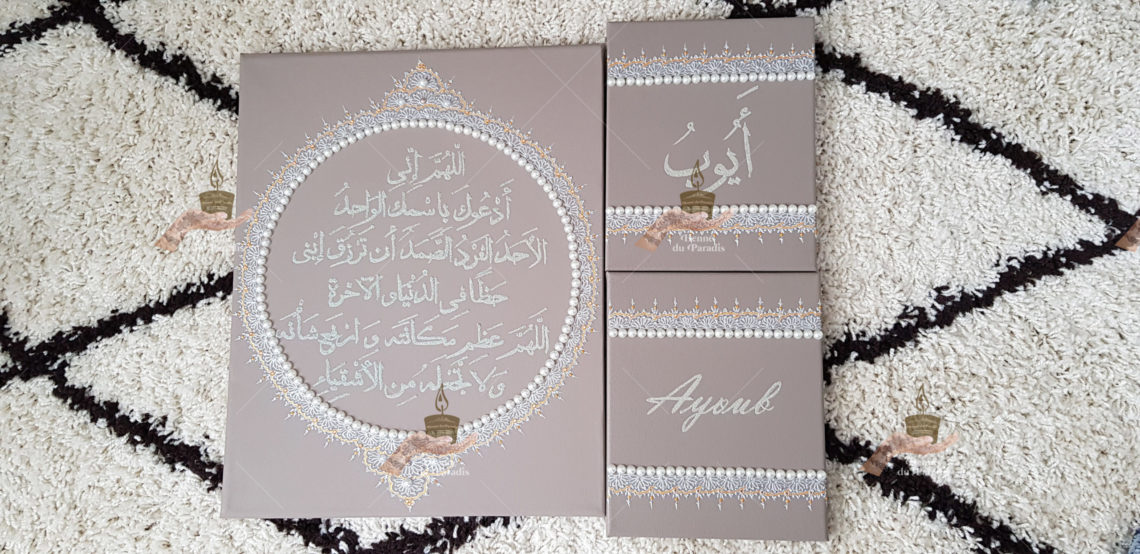 اللّهُمَّ إنّي
أَدْعُوكَ بِاسْمِكَ الوَاحِدُ
الأحَدُ الفَرْدُ الصَّمَدَ أن تَرْزُقَ إبْنِي
حَظًّا فِي الدُّنْيَا وَ الآخْرَة
اللَّهُمَّ عَظِّم مَكَانَتَه وَ ارفع شأنُه
وَلاَ تَجْعَلهُ مِن الأَشْقِيَاءِ
أَيُوبُ
Henné
du Paradis
Ayoub
du Paradis
du Paradis